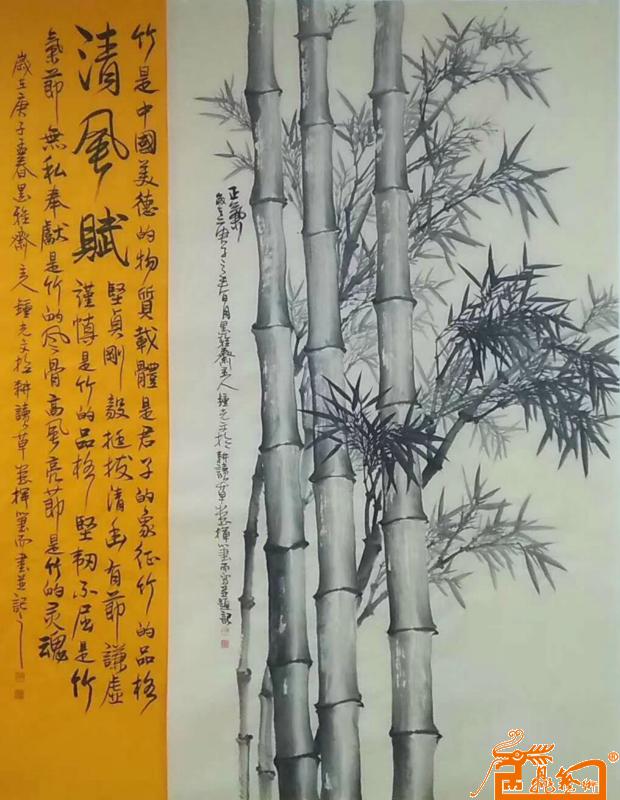 正氣
歲在庚子之春月墨雅齋主人鐘光文於耕讀草堂揮筆而寫並題記
竹是中國美德的物質載體是君子的象征竹的品格
清風賦
堅貞剛毅挺拔清幽有節謙虛
謹慎是竹的品格堅韌不屈是竹
氣節無私奉獻是竹的风骨高風亮節是竹的灵魂
歲在庚子孟春墨雅齋主人鐘光文於耕讀草堂揮筆而書並記